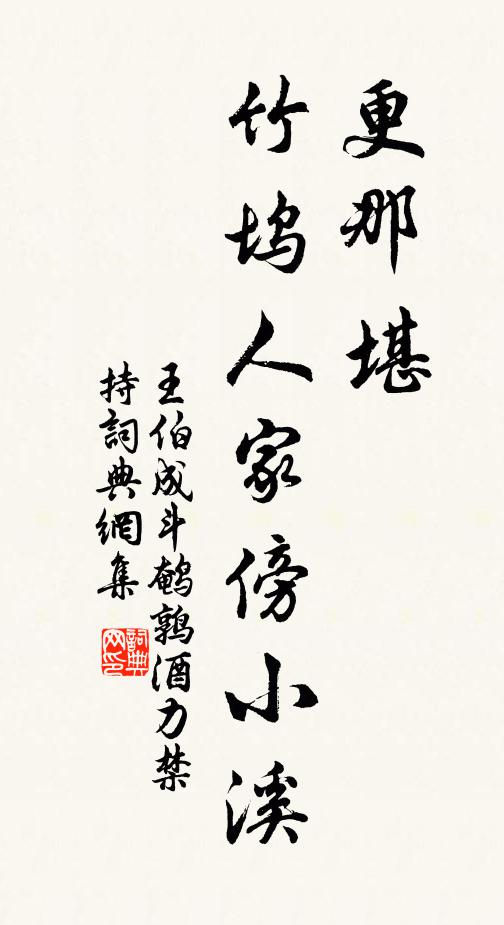 更那堪
竹坞人家傍小溪
王伯成斗鹌鹑酒力禁
持詞典網集
詞典网印